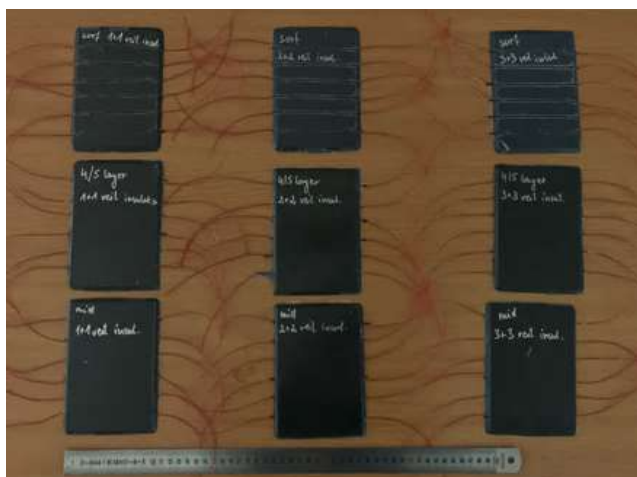 surf 1+1 veil insul.
surf
2+2 veil insul.
surf
3+3 veil insul.
4/5 layer
1+1 veil insulatio
4/5 layer
2+2 veil insul.
4/5 layer
3+3 veil insul.
mid
1+1 veil insul.
mid
2+2 veil insul.
mid
3+3 veil insul.